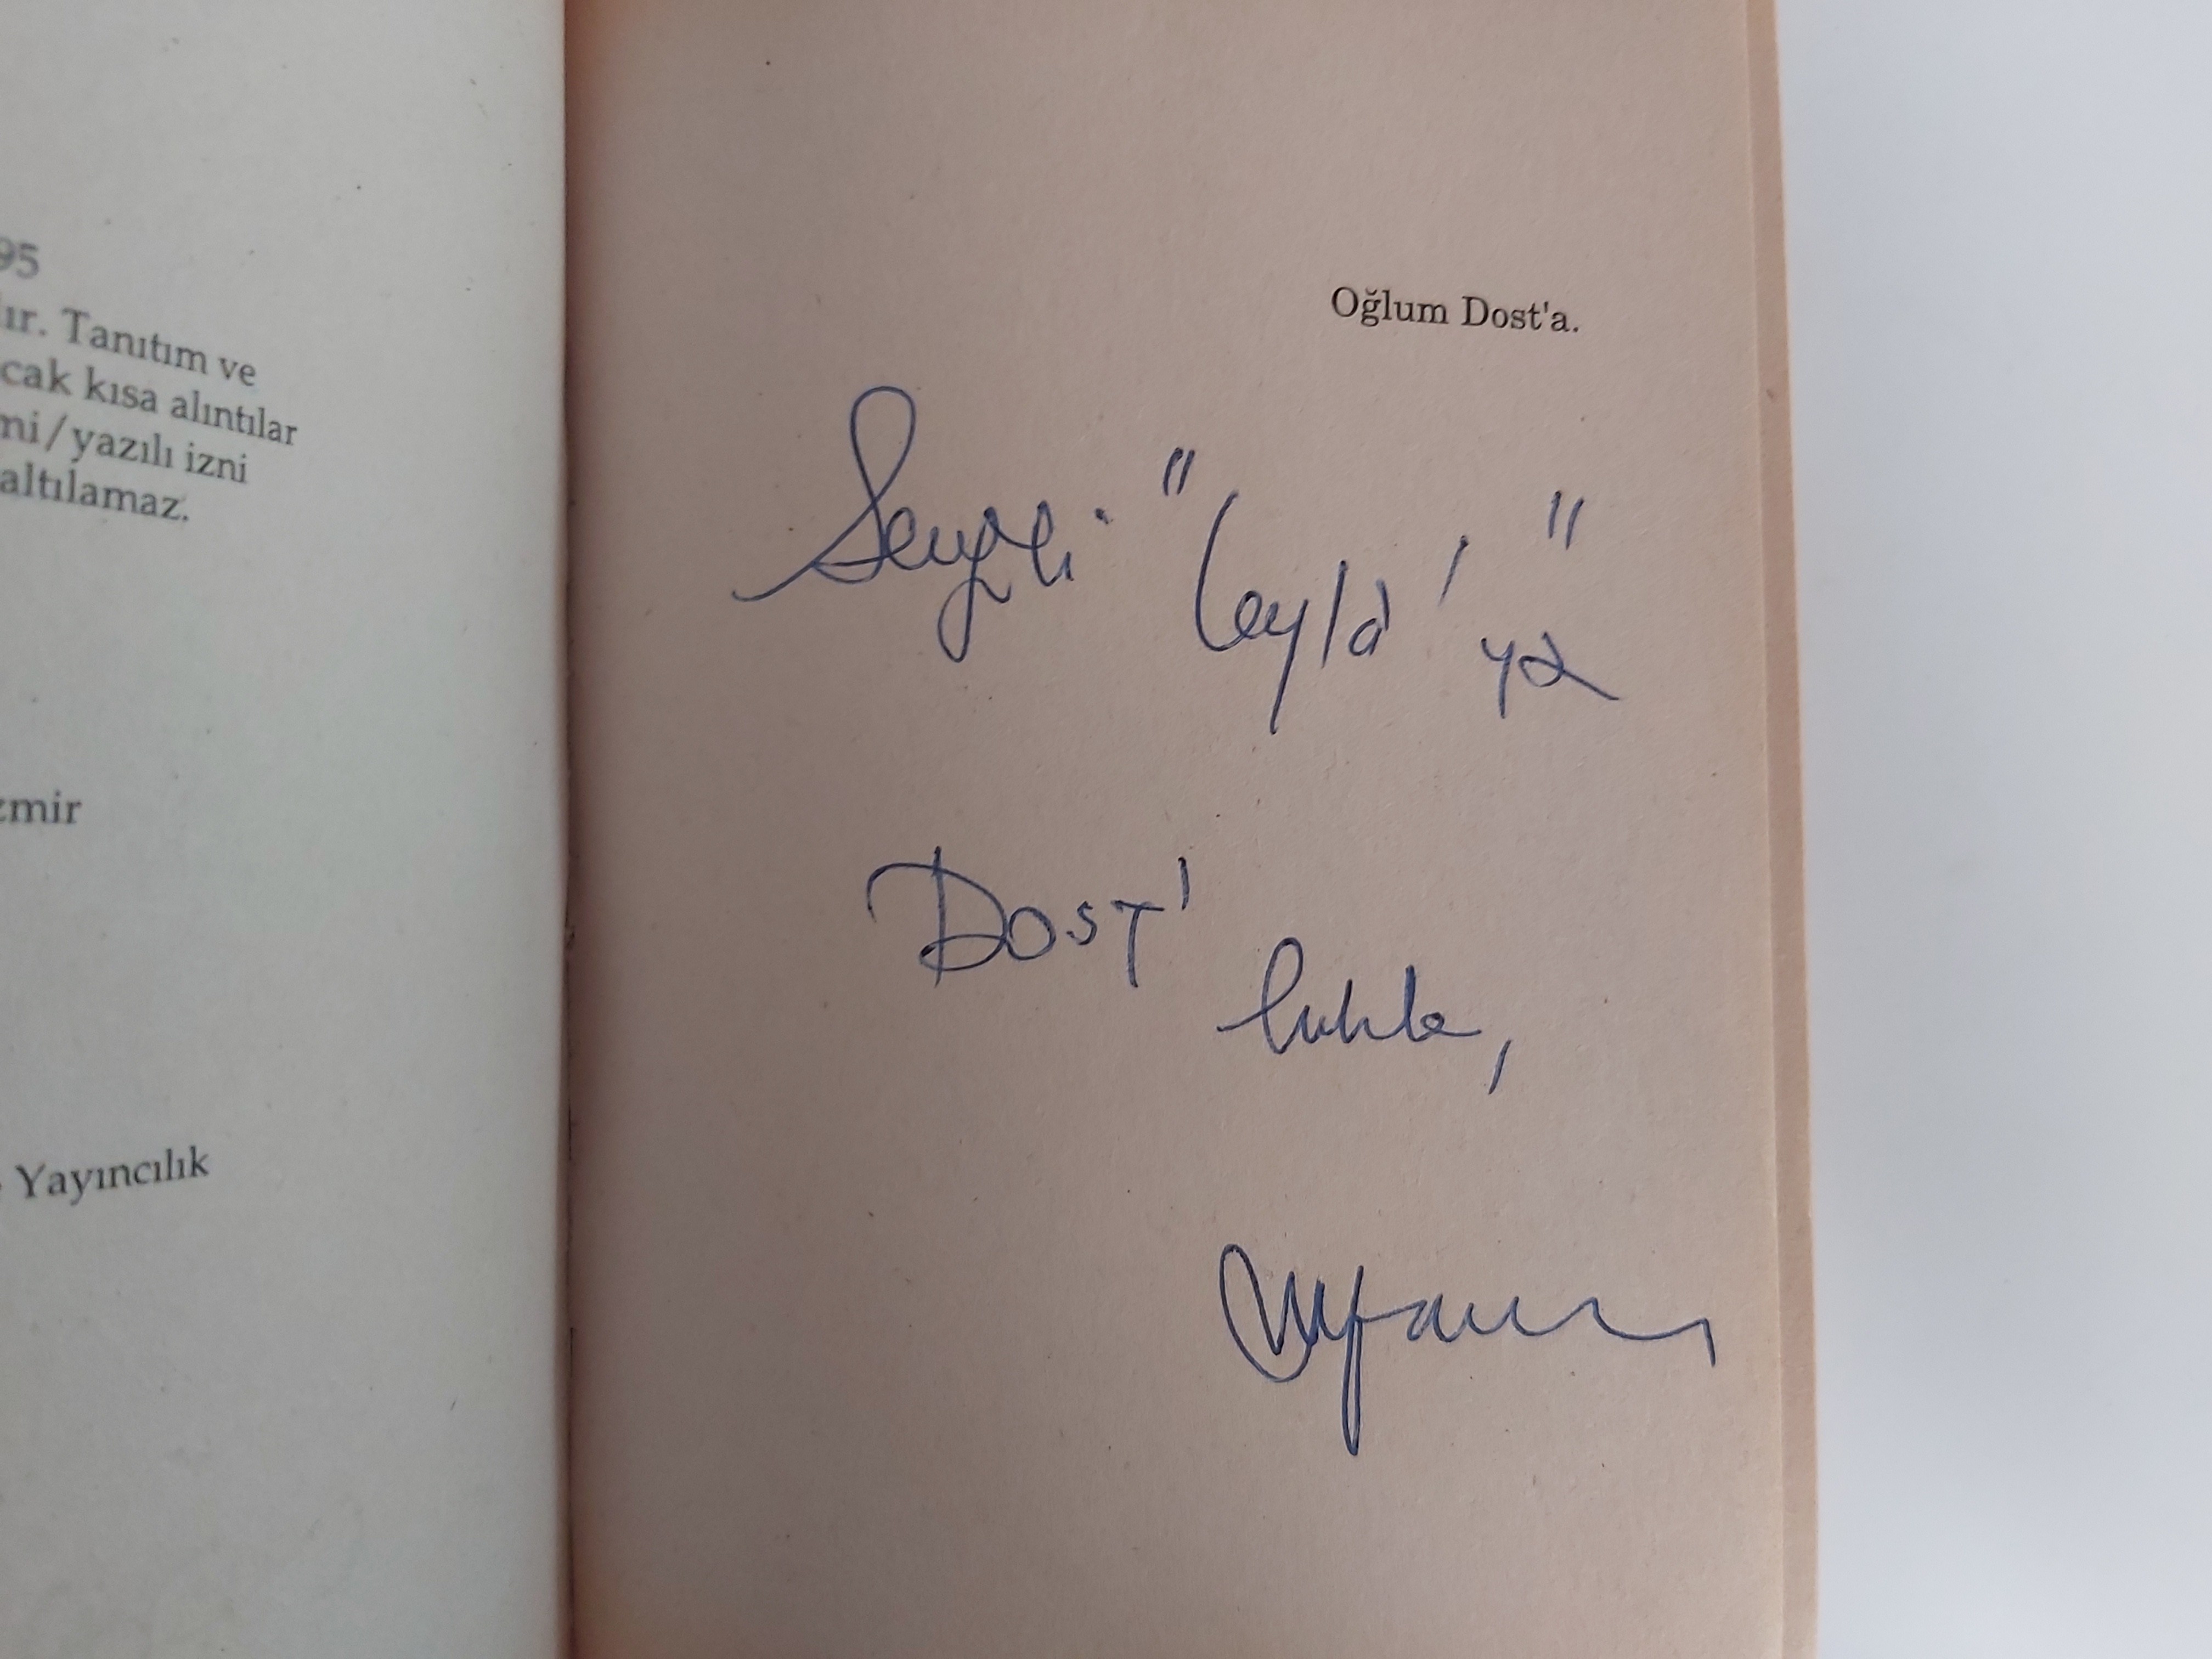 95
ır. Tanıtım ve
cak kısa alıntılar
mi/yazılı izni
altılamaz.
zmir
Yayıncılık
Oğlum Dost'a.
Sevgili "Leyla'ya"
Dost'
lukla,